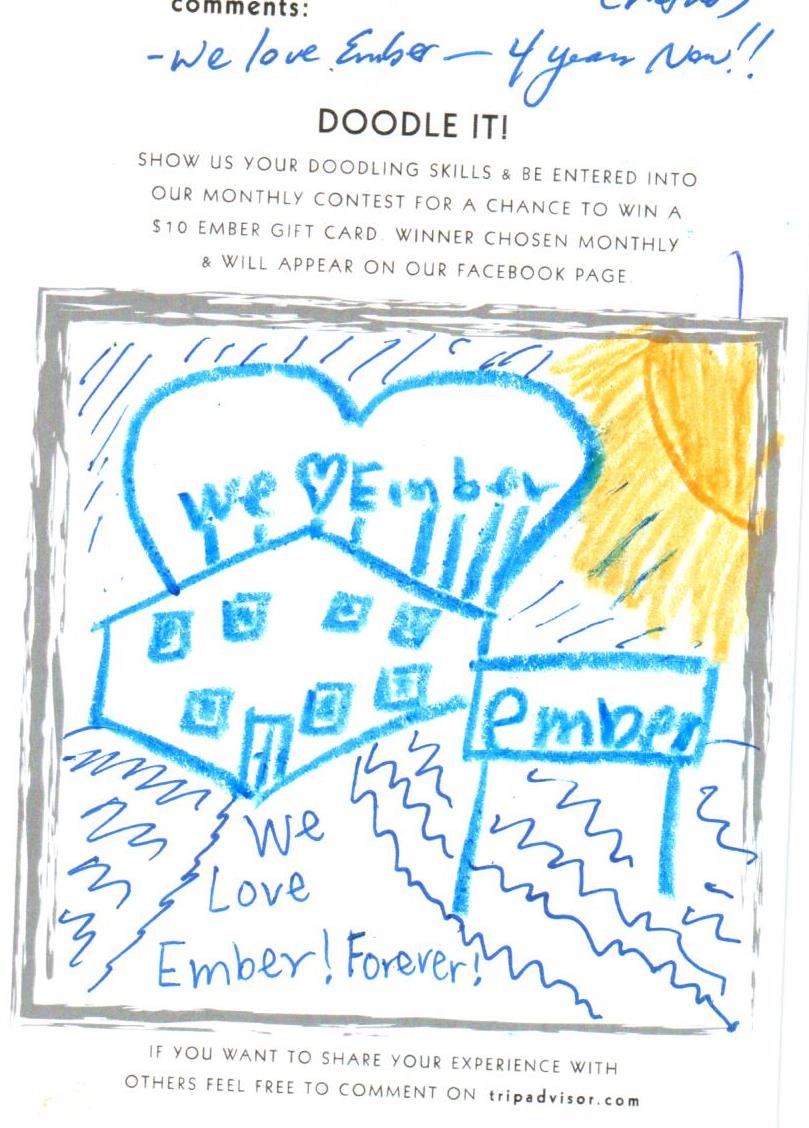 comments:
-We love Ember - 4 years Now!!
DOODLE IT!
SHOW US YOUR DOODLING SKILLS & BE ENTERED INTO
OUR MONTHLY CONTEST FOR A CHANCE TO WIN A
$10 EMBER GIFT CARD. WINNER CHOSEN MONTHLY
& WILL APPEAR ON OUR FACEBOOK PAGE.
We ♡ Ember
ember
We
Love
Ember! Forever!
IF YOU WANT TO SHARE YOUR EXPERIENCE WITH
OTHERS FEEL FREE TO COMMENT ON tripadvisor.com